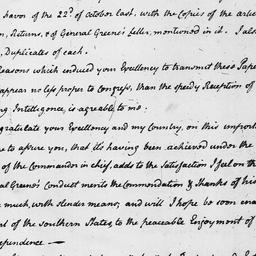 favor of the 22d of october last, with the Copies of the artic
n, Returns, & of General Greene's Letter, mentioned in it. I als
, Duplicates of each.
Reasons which induced your Excellency to transmit these Pape
appear no less proper to Congress, than the speedy Reception of
ng Intelligence, is agreeable to me.
gratulate your Excellency and my Country, on this import
e to assure you, that its having been achieved under the
of the Commander in chief, adds to the Satisfaction I feel on th
al Greene's Conduct merits the Commendation & thanks of his
e much, with slender means; and will I hope be soon ena
at of the southern States, to the peaceable Enjoyment of
ependence —